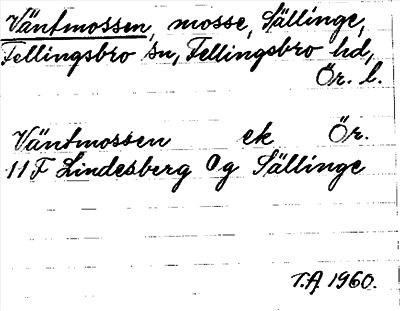 Väntmossen, mosse, Sällinge,
Fellingsbro sn, Fellingsbro hd,
Ör. l.
Väntmossen ek Ör.
11 F Lindesberg 0g Sällinge
T.A. 1960.